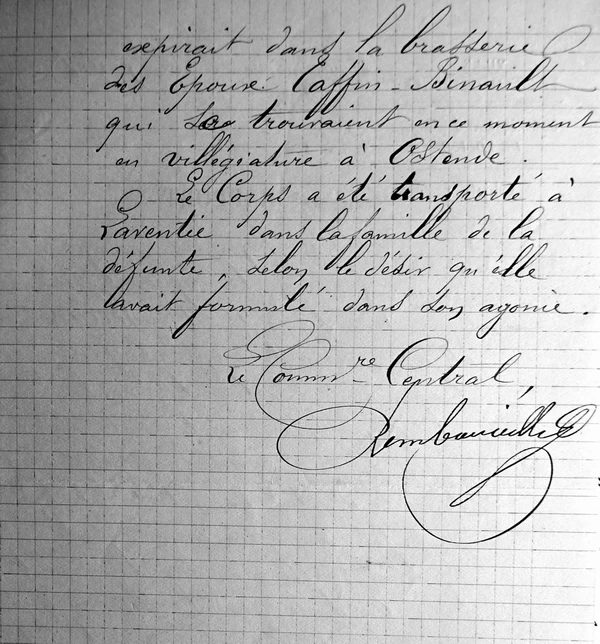 expirait dans la brasserie
des Epoux Taffin-Binault
qui se trouvaient en ce moment
en villégiature à Ostende.
Le Corps a été transporté à
Laventie dans la famille de la
défunte, selon le désir qu'elle
avait formulé dans son agonie.
Le Comm-re Central,